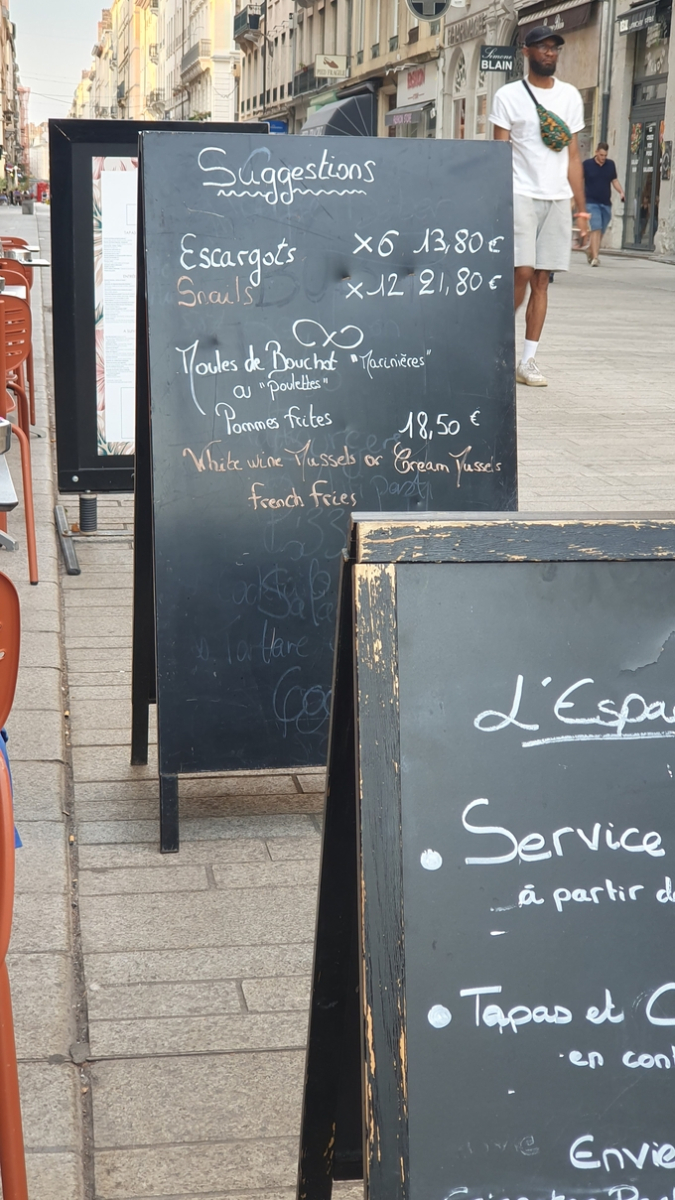 Simone
BLAIN
Suggestions
Escargots x6 13,80 €
Snails x12 21,80 €
Moules de Bouchot "Marinières"
ou "poulettes"
Pommes frites 18,50 €
White wine Mussels or Cream Mussels
french fries
Tartare
L'Espa
Service
à partir de
Tapas et C
en cont
Envie